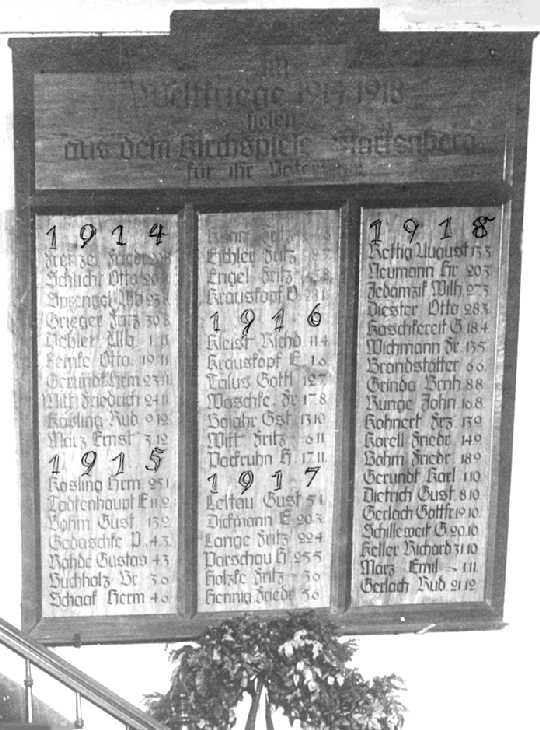 Im
Weltkriege 1914-1918
fielen
aus dem Kirchspiele
für ihr
1914
Schlicht Otto
Grieger Fritz 30 8
Otto 19 11
Gerundt Hrm 23 11
Witt Friedrich 24 11
Kösling Rud 9 12
März Ernst 3 12
1915
Kösling Hrm 25 1
Tadtenhaupt E 11 2
Böhm Gust 13 2
Gadaschke P 4 3
Rahde Gustav 4 3
Buchholz Br 3 6
Schaaf Herm 4 6
Eichler Fritz
Engel Fritz
Krauskopf O
1916
Kleist Richd 11 4
Krauskopf E 1 6
Talus Gottl 12 7
Waschke Fr 17 8
Bojahr Gst 13 10
Witt Fritz 6 11
Packruhn H 17 11
1917
Leltau Gust 5 1
Dickmann E 20 3
Lange Fritz 22 4
Parschau H 25 5
Holzke Fritz 3 6
Hennig Friedr 5 6
1918
Rettig August 13 3
Neumann Hr 20 3
Jedamzik Wilh 27 3
Diester Otto 28 3
Kaschkereit G 18 4
Wichmann Fr 13 5
Brandstätter 6 6
Grinda Brnh 8 8
Runge John 16 8
Kohnert Frz 13 9
Korell Friedr 14 9
Böhm Friedr 18 9
Gerundt Karl 1 10
Dietrich Gust 8 10
Gerlach Gottfr 19 10
Schilleweit G 20 10
Keller Richard 31 10
März Emil 1 11
Gerlach Rud 21 12